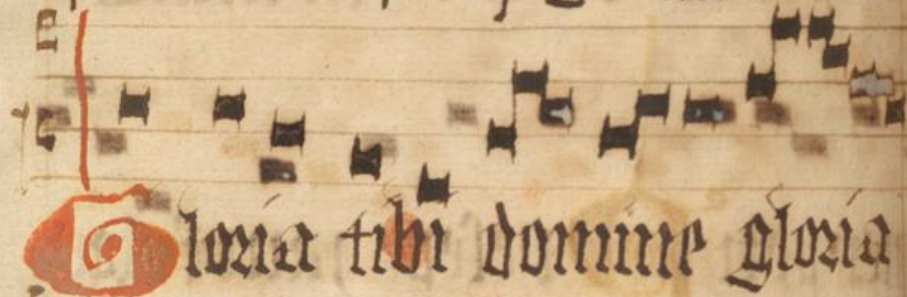 Gloria tibi domine gloria